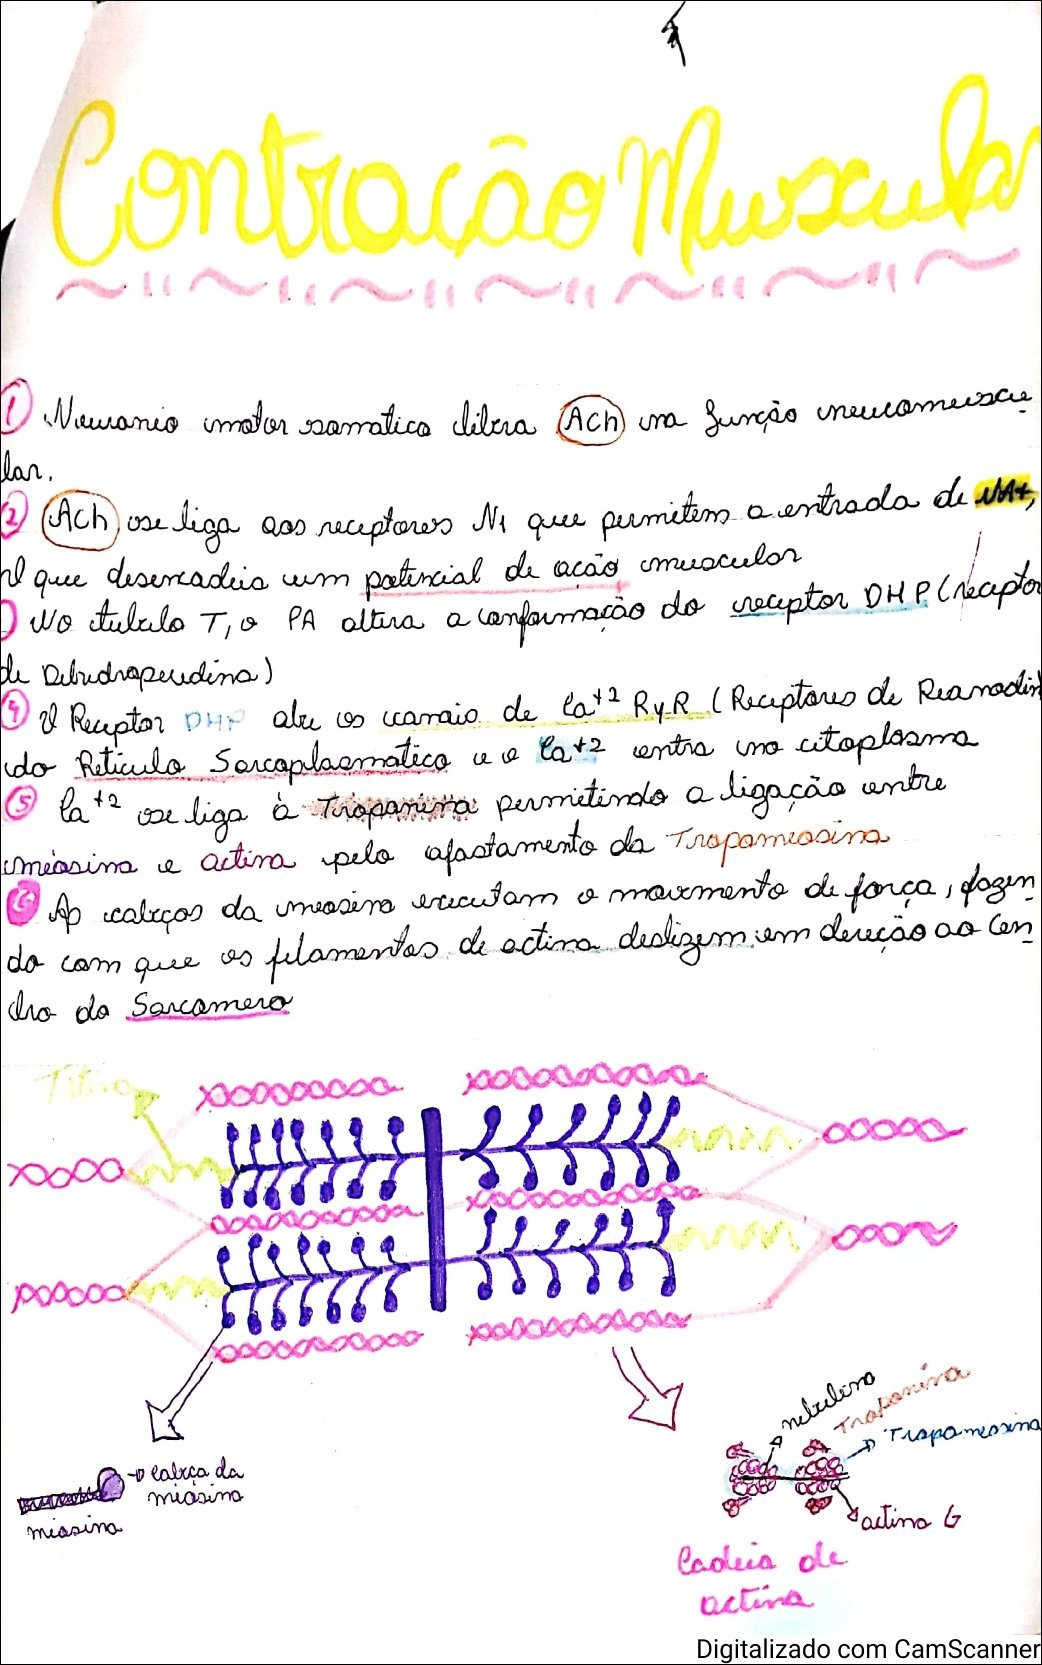 Contração Muscular
1 Neuronio motor somatico libera Ach na junção neuromuscu
lar.
2 Ach se liga aos receptores N1 que permitem a entrada de NA+,
que desencadeia um potencial de ação muscular
No tubulo T, o PA altera a conformação do receptor DHP (receptor
de Dihidroperidina)
4 O Receptor DHP abre os canais de Ca+2 RyR (Receptores de Rianodin
do Reticulo Sarcoplasmatico e o Ca+2 entra no citoplasma
5 Ca+2 se liga à Troponina permitindo a ligação entre
miosina e actina pelo afastamento da Tropomiosina
6 As cabeças da miosina executam o movimento de força, fazen
do com que os filamentos de actina deslizem em direção ao cen
tro do Sarcomero
Titina
nebulina
Troponina
Tropomiosina
cabeça da
miosina
miosina
actina G
Cadeia de
actina
Digitalizado com CamScanner